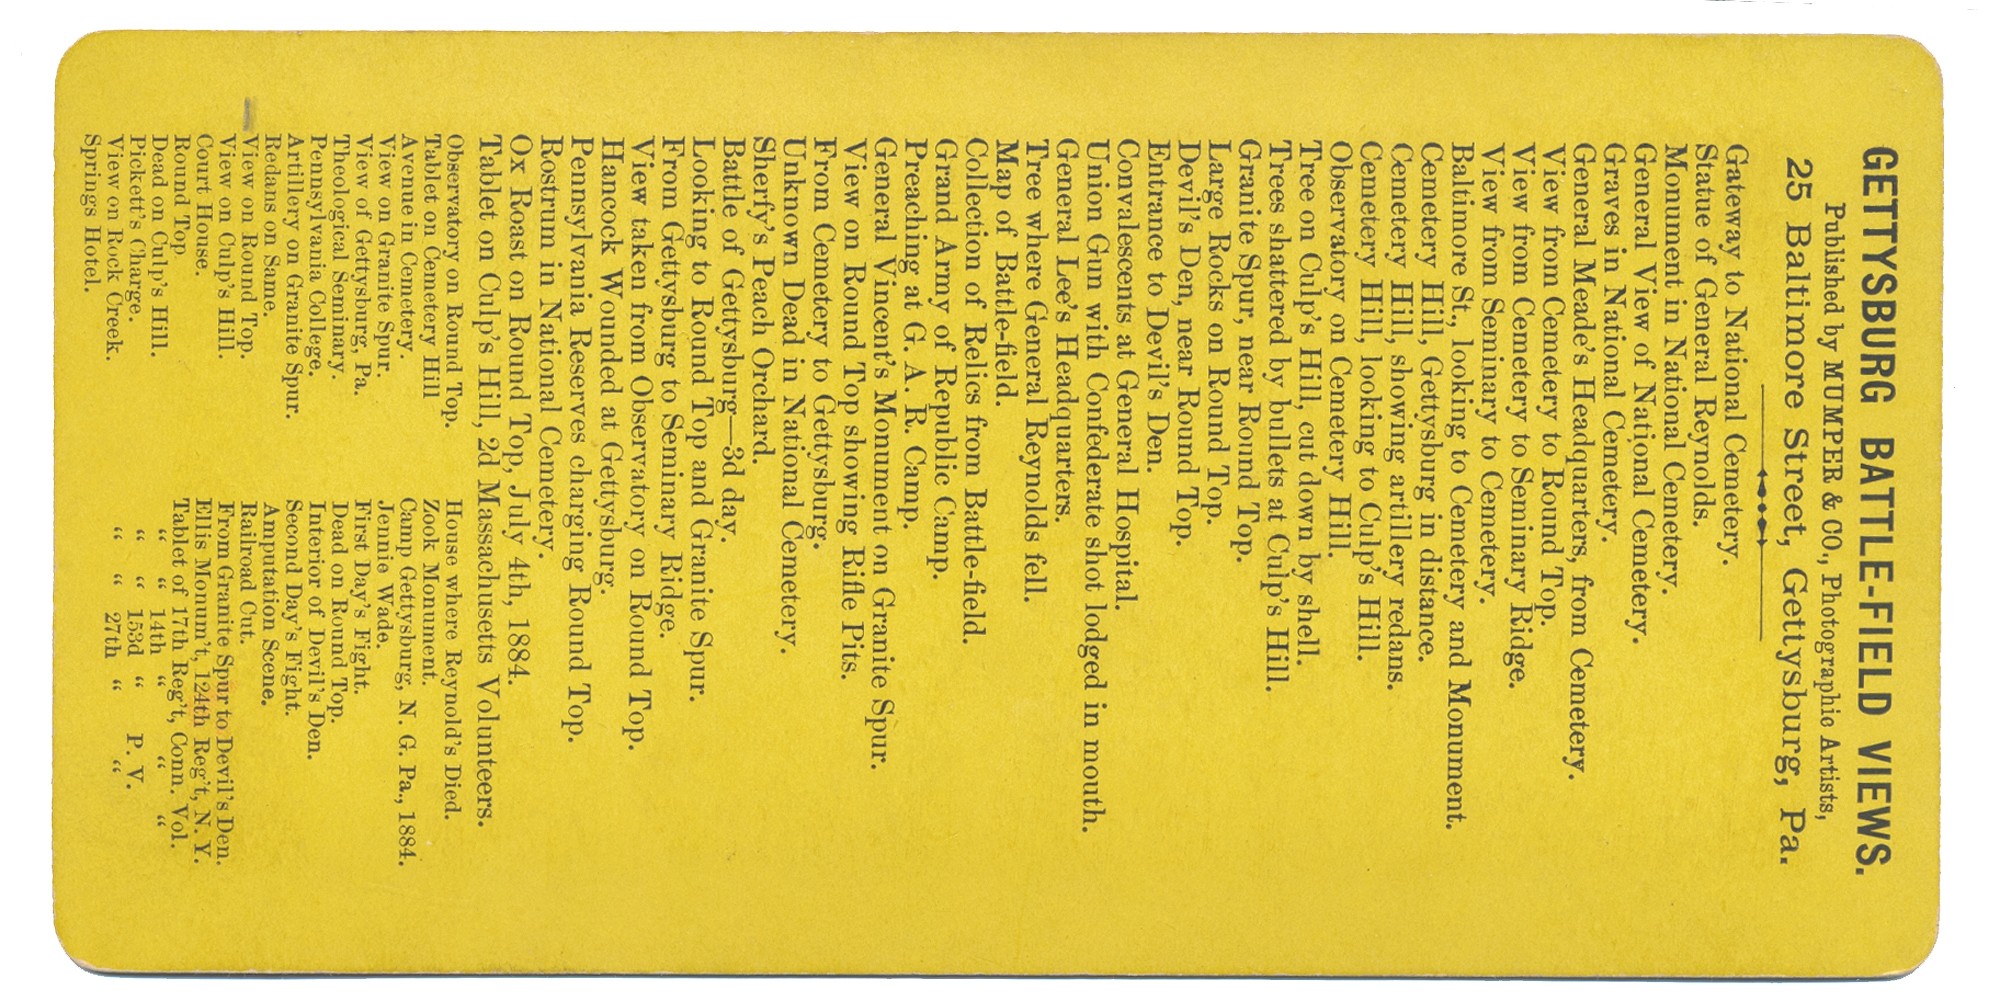 GETTYSBURG BATTLE-FIELD VIEWS.
Published by MUMPER & CO., Photographic Artists,
25 Baltimore Street, Gettysburg, Pa.
Gateway to National Cemetery.
Statue of General Reynolds.
Monument in National Cemetery.
General View of National Cemetery.
Graves in National Cemetery.
General Meade's Headquarters, from Cemetery.
View from Cemetery to Round Top.
View from Cemetery to Seminary Ridge.
View from Seminary to Cemetery.
Baltimore St., looking to Cemetery and Monument.
Cemetery Hill, Gettysburg in distance.
Cemetery Hill, showing artillery redans.
Cemetery Hill, looking to Culp's Hill.
Observatory on Cemetery Hill.
Tree on Culp's Hill, cut down by shell.
Trees shattered by bullets at Culp's Hill.
Granite Spur, near Round Top.
Large Rocks on Round Top.
Devil's Den, near Round Top.
Entrance to Devil's Den.
Convalescents at General Hospital.
Union Gun with Confederate shot lodged in mouth.
General Lee's Headquarters.
Tree where General Reynolds fell.
Map of Battle-field.
Collection of Relics from Battle-field.
Grand Army of Republic Camp.
Preaching at G. A. R. Camp.
General Vincent's Monument on Granite Spur.
View on Round Top showing Rifle Pits.
From Cemetery to Gettysburg.
Unknown Dead in National Cemetery.
Sherfy's Peach Orchard.
Battle of Gettysburg—3d day.
Looking to Round Top and Granite Spur.
From Gettysburg to Seminary Ridge.
View taken from Observatory on Round Top.
Hancock Wounded at Gettysburg.
Pennsylvania Reserves charging Round Top.
Rostrum in National Cemetery.
Ox Roast on Round Top, July 4th, 1884.
Tablet on Culp's Hill, 2d Massachusetts Volunteers.
Observatory on Round Top.
Tablet on Cemetery Hill
Avenue in Cemetery.
View on Granite Spur.
View of Gettysburg, Pa.
Theological Seminary.
Pennsylvania College.
Artillery on Granite Spur.
Redans on Same.
View on Round Top.
View on Culp's Hill.
Court House.
Round Top.
Dead on Culp's Hill.
Pickett's Charge.
View on Rock Creek.
Springs Hotel.
House where Reynold's Died.
Zook Monument.
Camp Gettysburg, N. G. Pa., 1884.
Jennie Wade.
First Day's Fight.
Dead on Round Top.
Interior of Devil's Den.
Second Day's Fight.
Amputation Scene.
Railroad Cut.
From Granite Spur to Devil's Den.
Ellis Monum't, 124th Reg't, N. Y.
Tablet of 17th Reg't, Conn. Vol.
“ “ 14th “ “ “
“ “ 153d “ P. V.
“ “ 27th “ “